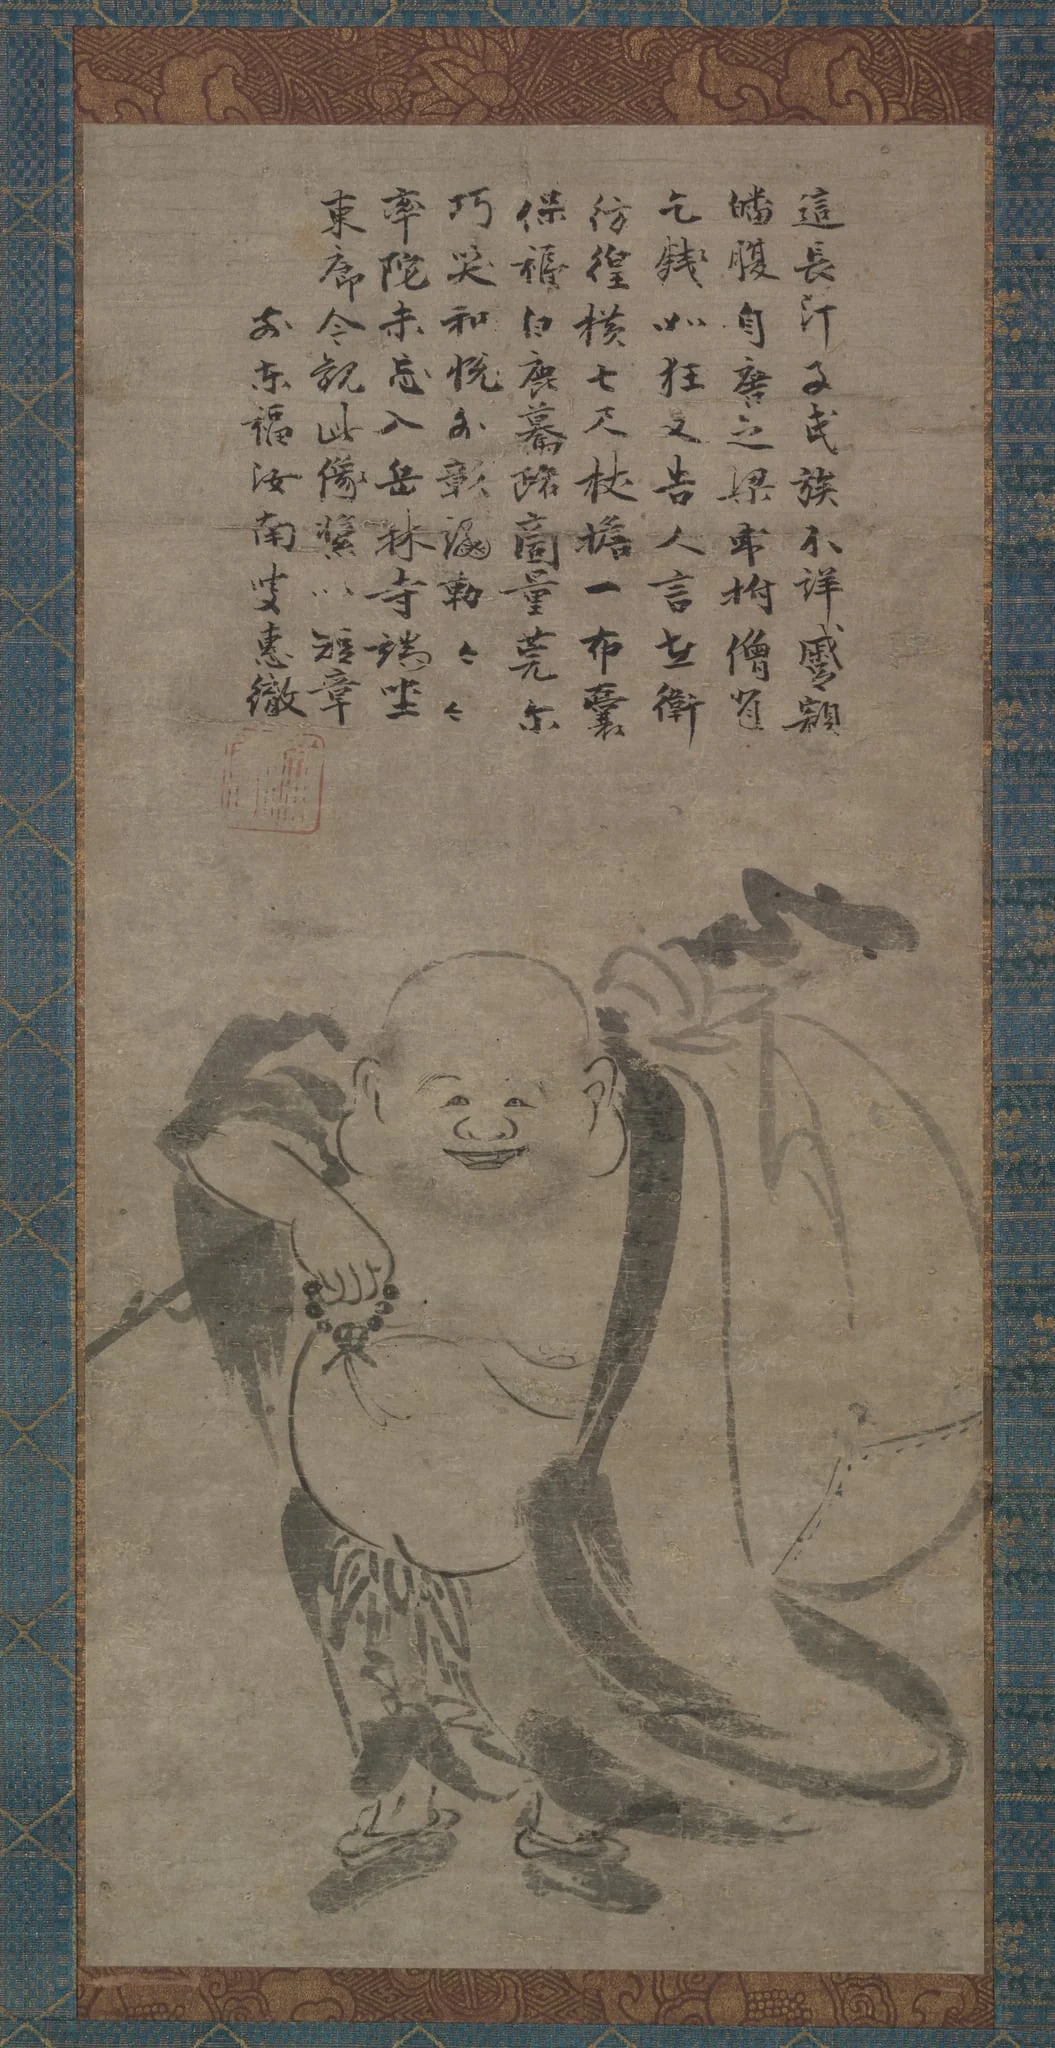 這長汀子氏族不詳蹙額
皤腹自唐之梁拊僧背
乞錢如狂又告人言在衢
彷徨横七尺杖擔一布囊
保福白鹿驀路商量莞尓
巧笑和悦外彰彌勒々々
率陀未忘入岳林寺端坐
東廊今観此像賛以短章
前東福汝南叟惠徹